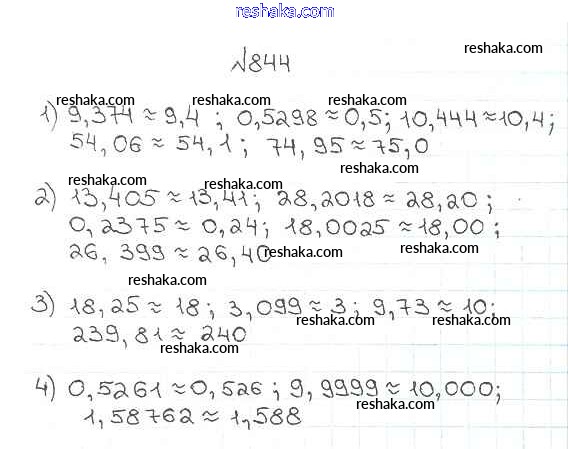 reshaka.com
reshaka.com
№844
reshaka.com reshaka.com reshaka.com
1) 9,374 ≈ 9,4 ; 0,5298 ≈ 0,5; 10,444 ≈ 10,4;
54,06 ≈ 54,1; 74,95 ≈ 75,0
reshaka.com
reshaka.com reshaka.com
2) 13,405 ≈ 13,41; 28,2018 ≈ 28,20;
reshaka.com
0,2375 ≈ 0,24; 18,0025 ≈ 18,00;
26,399 ≈ 26,40
reshaka.com reshaka.com
reshaka.com
3) 18,25 ≈ 18; 3,099 ≈ 3; 9,73 ≈ 10;
reshaka.com reshaka.com
239,81 ≈ 240
reshaka.com
4) 0,5261 ≈ 0,526; 9,9999 ≈ 10,000;
reshaka.com
1,58762 ≈ 1,588